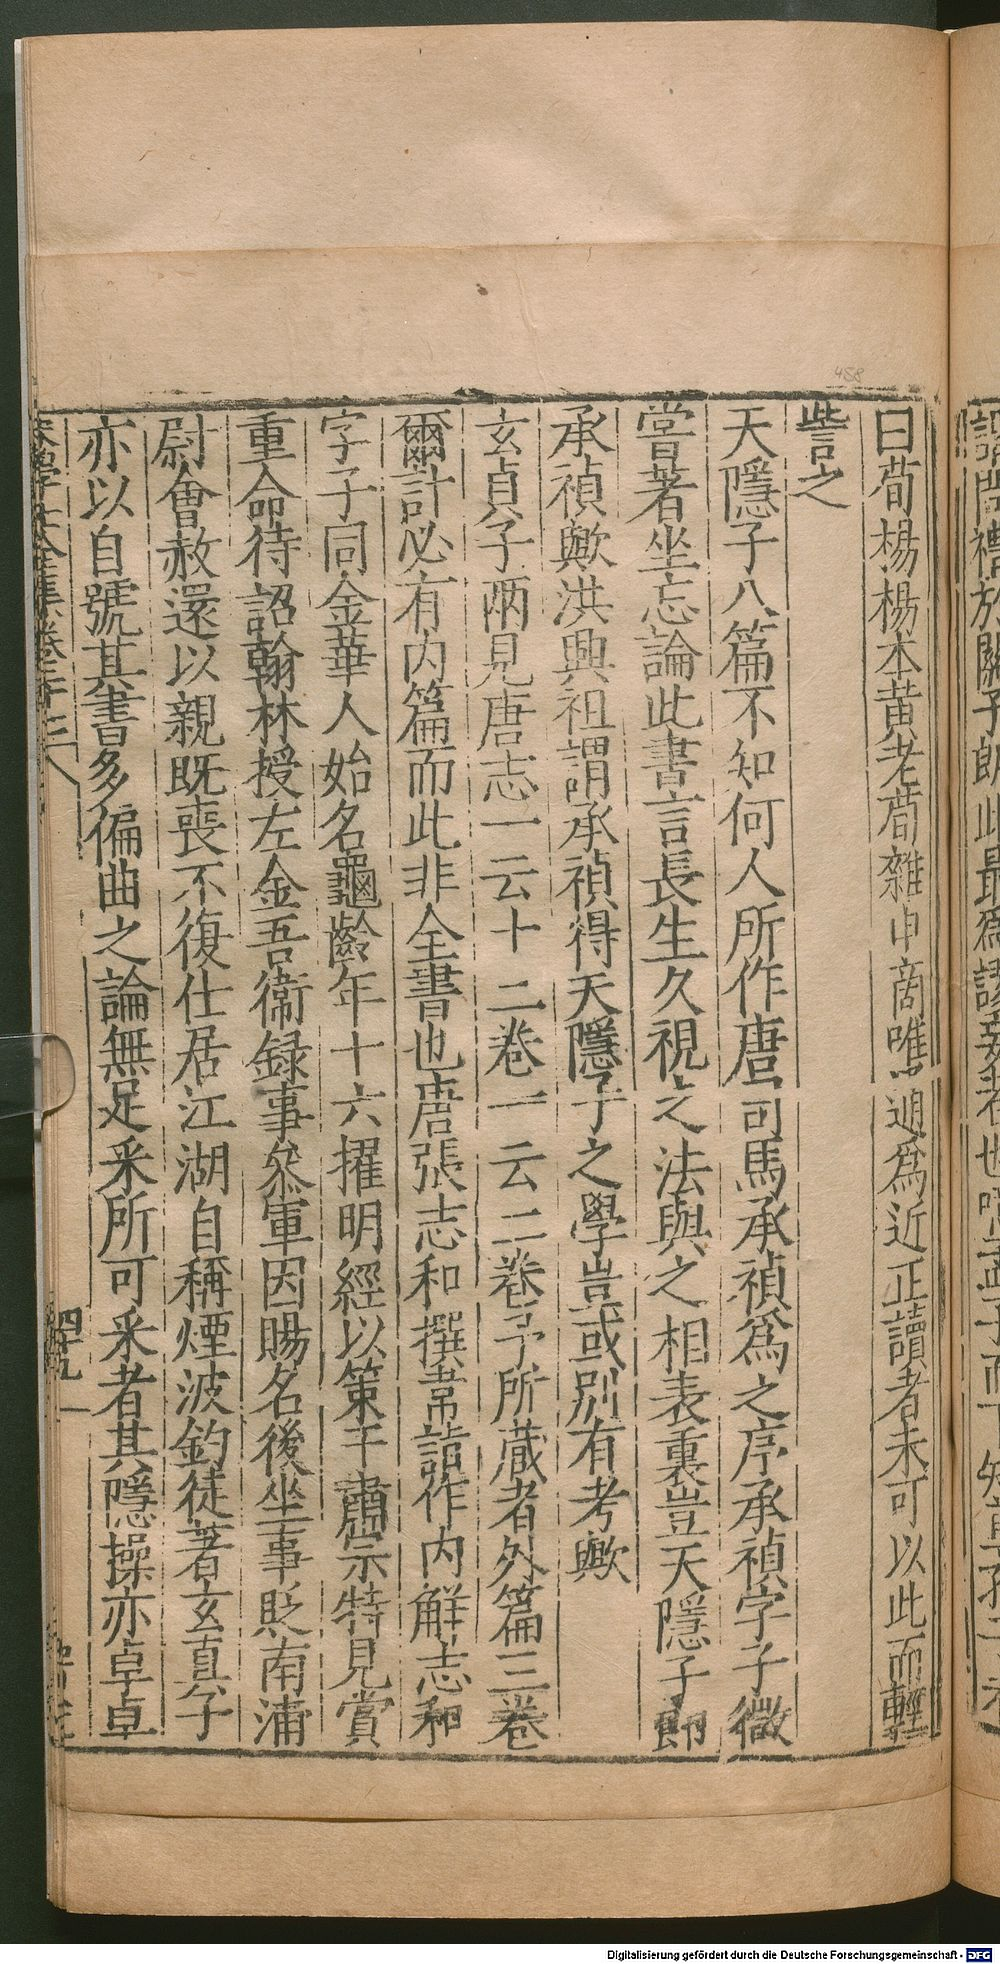 曰荀楊楊本黄老荀雜申商唯迵爲近正讀者未可以此而輕
訾之
天隱子八篇不知何人所作唐司馬承禎爲之序承禎字子微
嘗著坐忘論此書言長生久視之法與之相表裏豈天隱子卽
承禎歟洪興祖謂承禎得天隱子之學豈或別有考歟
玄貞子兩見唐志一云十二卷一云二卷予所藏者外篇三卷
爾計必有内篇而此非全書也唐張志和撰韋詣作内解志和
字子同金華人始名龜齡年十六擢明經以策干肅宗特見賞
重命待詔翰林授左金吾衞録事叅軍因賜名後坐事貶南浦
尉會赦還以親既喪不復仕居江湖自稱煙波釣徒著玄真子
亦以自號其書多偏曲之論無足釆所可釆者其隱操亦卓卓
四十九
458
Digitalisierung gefördert durch die Deutsche Forschungsgemeinschaft - DFG